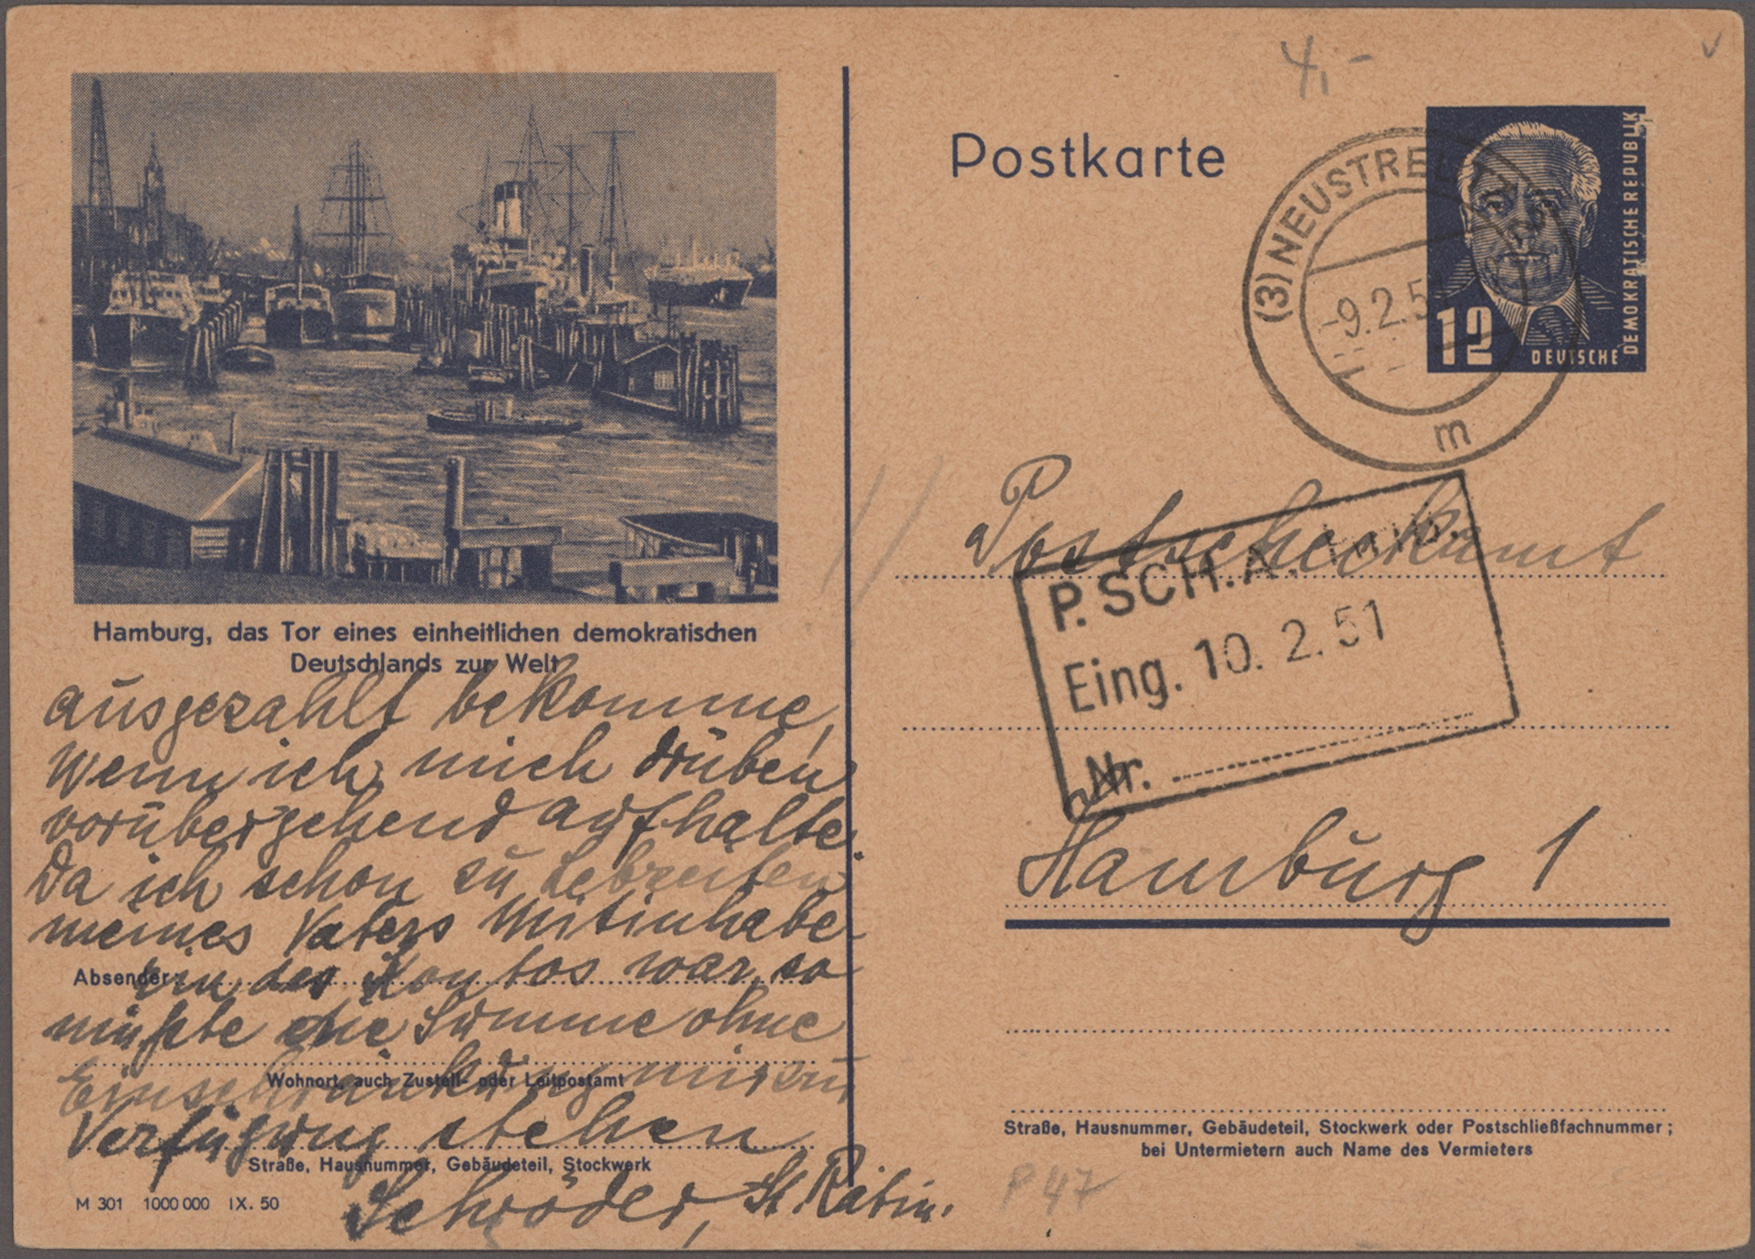 Hamburg, das Tor eines einheitlichen demokratischen
Deutschlands zur Welt
ausgezahlt bekomme,
wenn ich mich drüben
vorübergehend aufhalte.
Da ich schon zu Lebzeiten
meines Vaters Mitinhabe-
rin des Kontos war, so
müßte die Summe ohne
Einschränkung mir zur
Verfügung stehen
Schröder, St. Rätin.
Absender:
Wohnort, auch Zustell- oder Leitpostamt
Straße, Hausnummer, Gebäudeteil, Stockwerk
M 301 1000000 IX. 50
4,-
Postkarte
(3) NEUSTREL
-9.2.5
m
12
DEUTSCHE
DEMOKRATISCHE REPUBLIK
Postscheckamt
P.SCH.A. Hamb.
Eing. 10. 2. 51
Nr.
Hamburg 1
Straße, Hausnummer, Gebäudeteil, Stockwerk oder Postschließfachnummer;
bei Untermietern auch Name des Vermieters
P 47